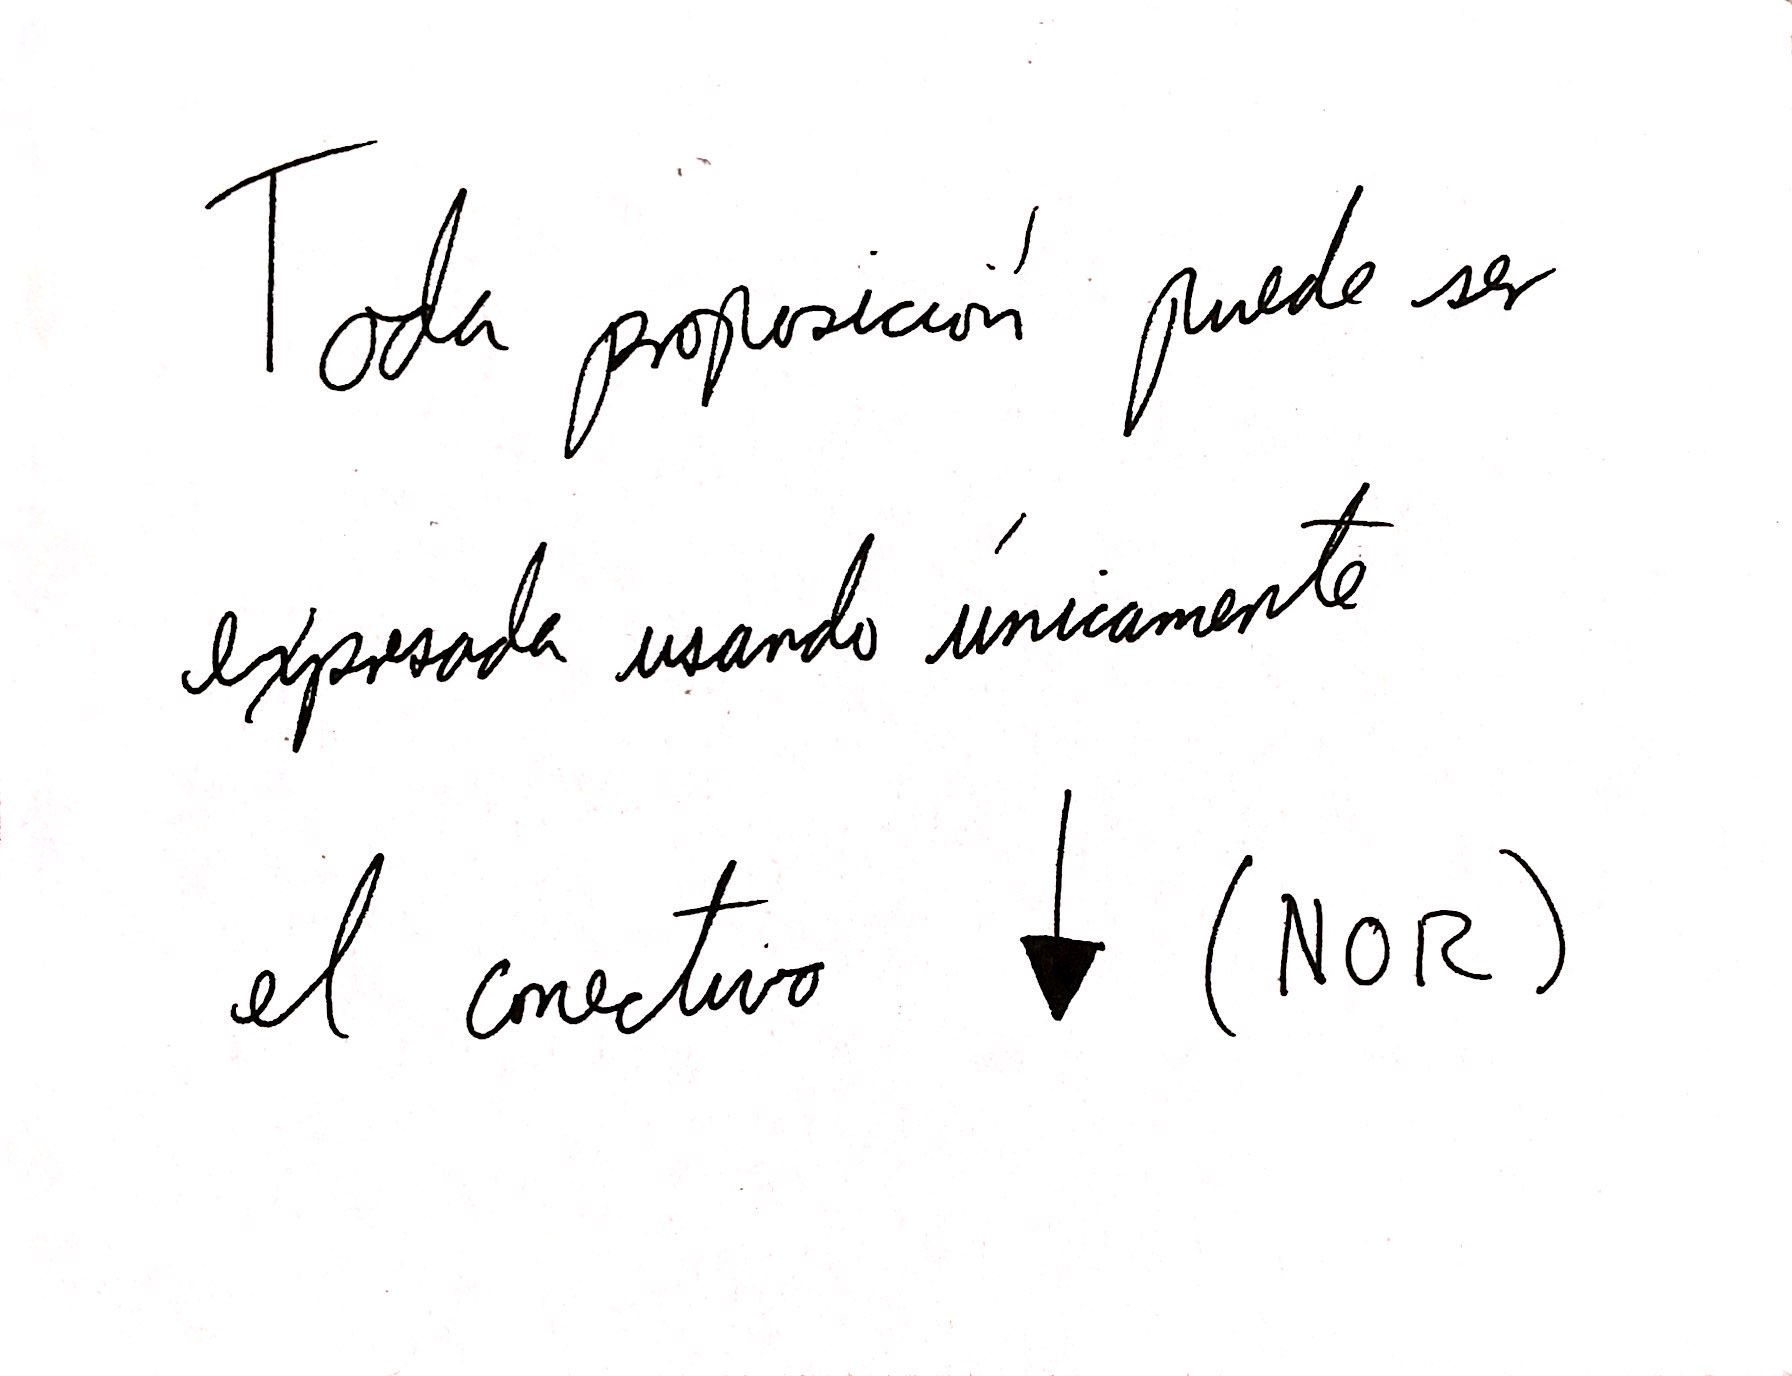 Toda proposición puede ser
expresada usando únicamente
el conectivo ↓ (NOR)